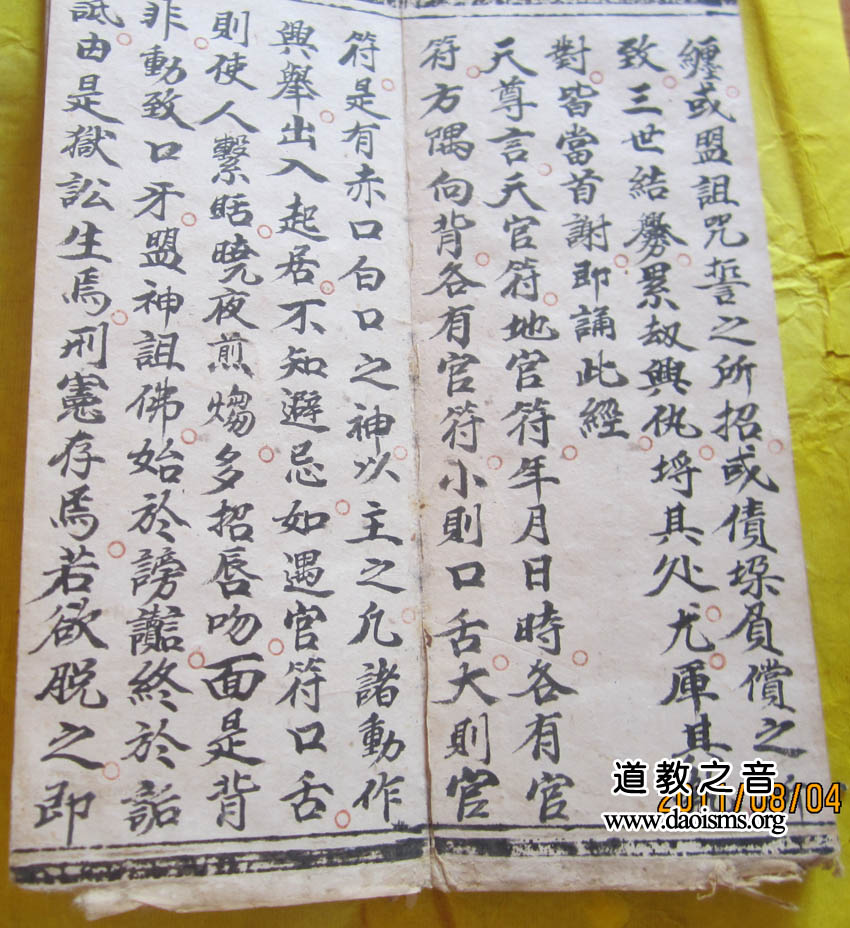 纏或盟詛咒誓之所招或債垛負償之所
致三世結釁累劫興仇埒其处尤厙其
對皆當首謝即誦此經
天尊言天官符地官符年月日時各有官
符方隅向背各有官符小則口舌大則官
符是有赤口白口之神以主之凡諸動作
興舉出入起居不知避忌如遇官符口舌
則使人繫𣅿曉夜煎㷌多招唇吻面是背
非動致口牙盟神詛佛始於謗讟終於詬
詆由是獄訟生焉刑憲存焉若欲脱之即
道教之音
www.daoisms.org
2011/08/04